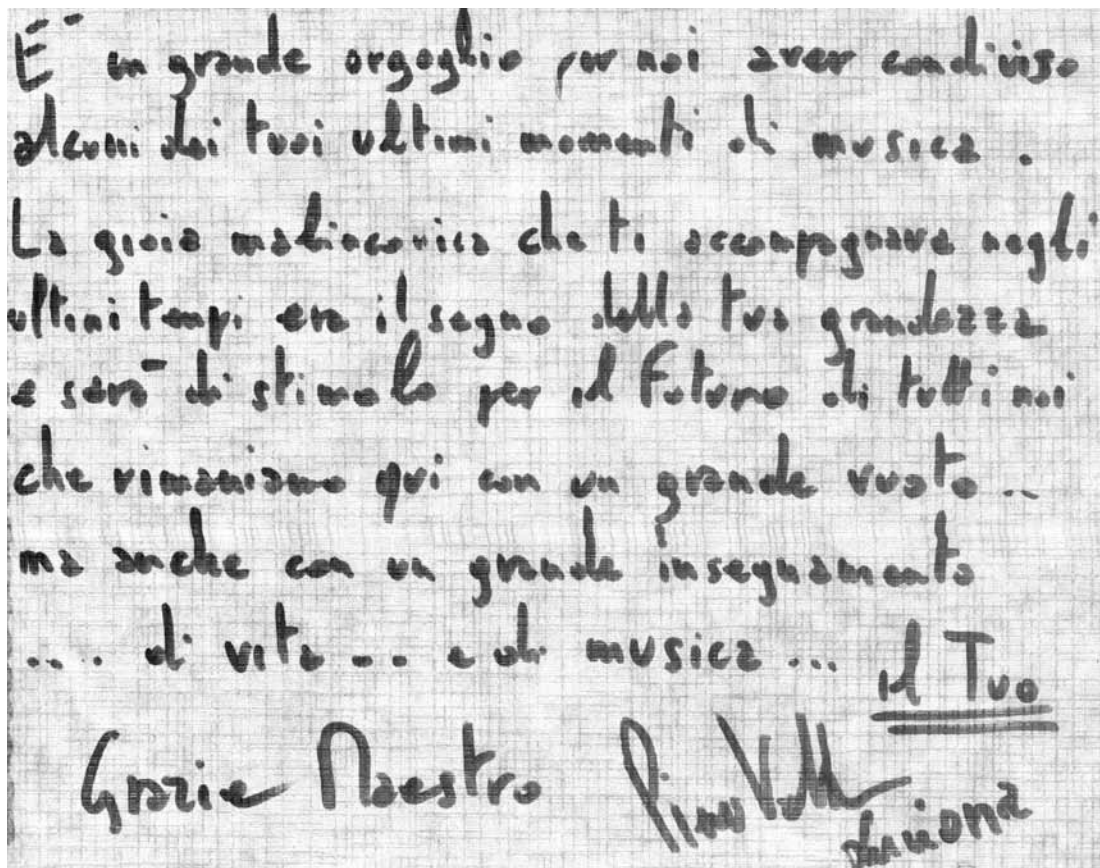 E' un grande orgoglio per noi aver condiviso
alcuni dei tuoi ultimi momenti di musica.
La gioia malinconica che ti accompagnava negli
ultimi tempi era il segno della tua grandezza
e sarà di stimolo per il Futuro di tutti noi
che rimaniamo qui con un grande vuoto ..
ma anche con un grande insegnamento
.... di vita .. e di musica ...
il Tuo
Grazie Maestro
Pino